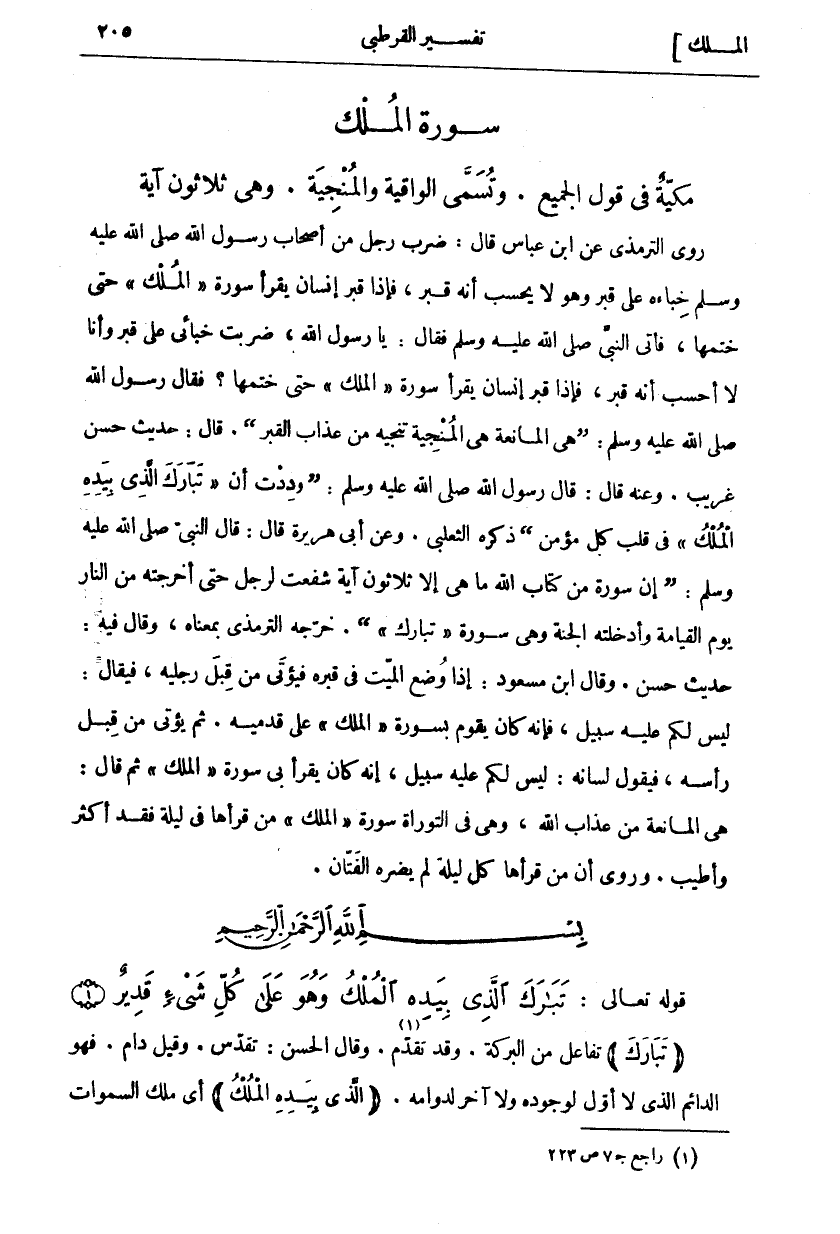 الملك ] تفسير القرطبى ٢٠٥
سورة المُلْك
مكيّةٌ فى قول الجميع . وتُسَمَّى الواقية والمُنْجِيَة . وهى ثلاثون آية
روى الترمذى عن ابن عباس قال : ضرب رجل من أصحاب رسول الله صلى الله عليه
وسلم خِباءه على قبر وهو لا يحسب أنه قبر ، فإذا قبر إنسان يقرأ سورة « المُلْك » حتى
ختمها ، فأتى النبىَّ صلى الله عليه وسلم فقال : يا رسول الله ، ضربت خبائى على قبر وأنا
لا أحسب أنه قبر ، فإذا قبر إنسان يقرأ سورة « الملك » حتى ختمها ؟ فقال رسول الله
صلى الله عليه وسلم : ”هى المانعة هى المُنْجِية تنجيه من عذاب القبر“ . قال : حديث حسن
غريب . وعنه قال : قال رسول الله صلى الله عليه وسلم : ”ودِدْت أن « تَبَارَكَ الَّذِى بِيَدِهِ
الْمُلْكُ » فى قلب كل مؤمن“ ذكره الثعلبى . وعن أبى هريرة قال : قال النبىّ صلى الله عليه
وسلم : ” إن سورة من كتاب الله ما هى إلا ثلاثون آية شفعت لرجل حتى أخرجته من النار
يوم القيامة وأدخلته الجنة وهى سورة « تبارك » “ . خرّجه الترمذى بمعناه ، وقال فيه :
حديث حسن . وقال ابن مسعود : إذا وُضع الميّت فى قبره فيؤتَى من قِبَل رجليه ، فيقال :
ليس لكم عليه سبيل ، فإنه كان يقوم بسورة « الملك » على قدميه . ثم يؤتى من قِبل
رأسه ، فيقول لسانه : ليس لكم عليه سبيل ، إنه كان يقرأ بى سورة « الملك » ثم قال :
هى المانعة من عذاب الله ، وهى فى التوراة سورة « الملك » من قرأها فى ليلة فقد أكثر
وأطيب . وروى أن من قرأها كل ليلة لم يضره الفَتّان .
بِسْمِ اللهِ الرَّحْمَٰنِ الرَّحِيمِ
قوله تعالى : تَبَٰرَكَ ٱلَّذِى بِيَدِهِ ٱلْمُلْكُ وَهُوَ عَلَىٰ كُلِّ شَىْءٍ قَدِيرٌ ۝١
﴿ تَبَارَكَ ﴾ تفاعل من البركة . وقد تقدّم (١) . وقال الحسن : تقدّس . وقيل دام . فهو
الدائم الذى لا أوّل لوجوده ولا آخر لدوامه . ﴿ الَّذِى بِيَدِهِ الْمُلْكُ ﴾ أى ملك السموات
(١) راجع ج ٧ ص ٢٢٣